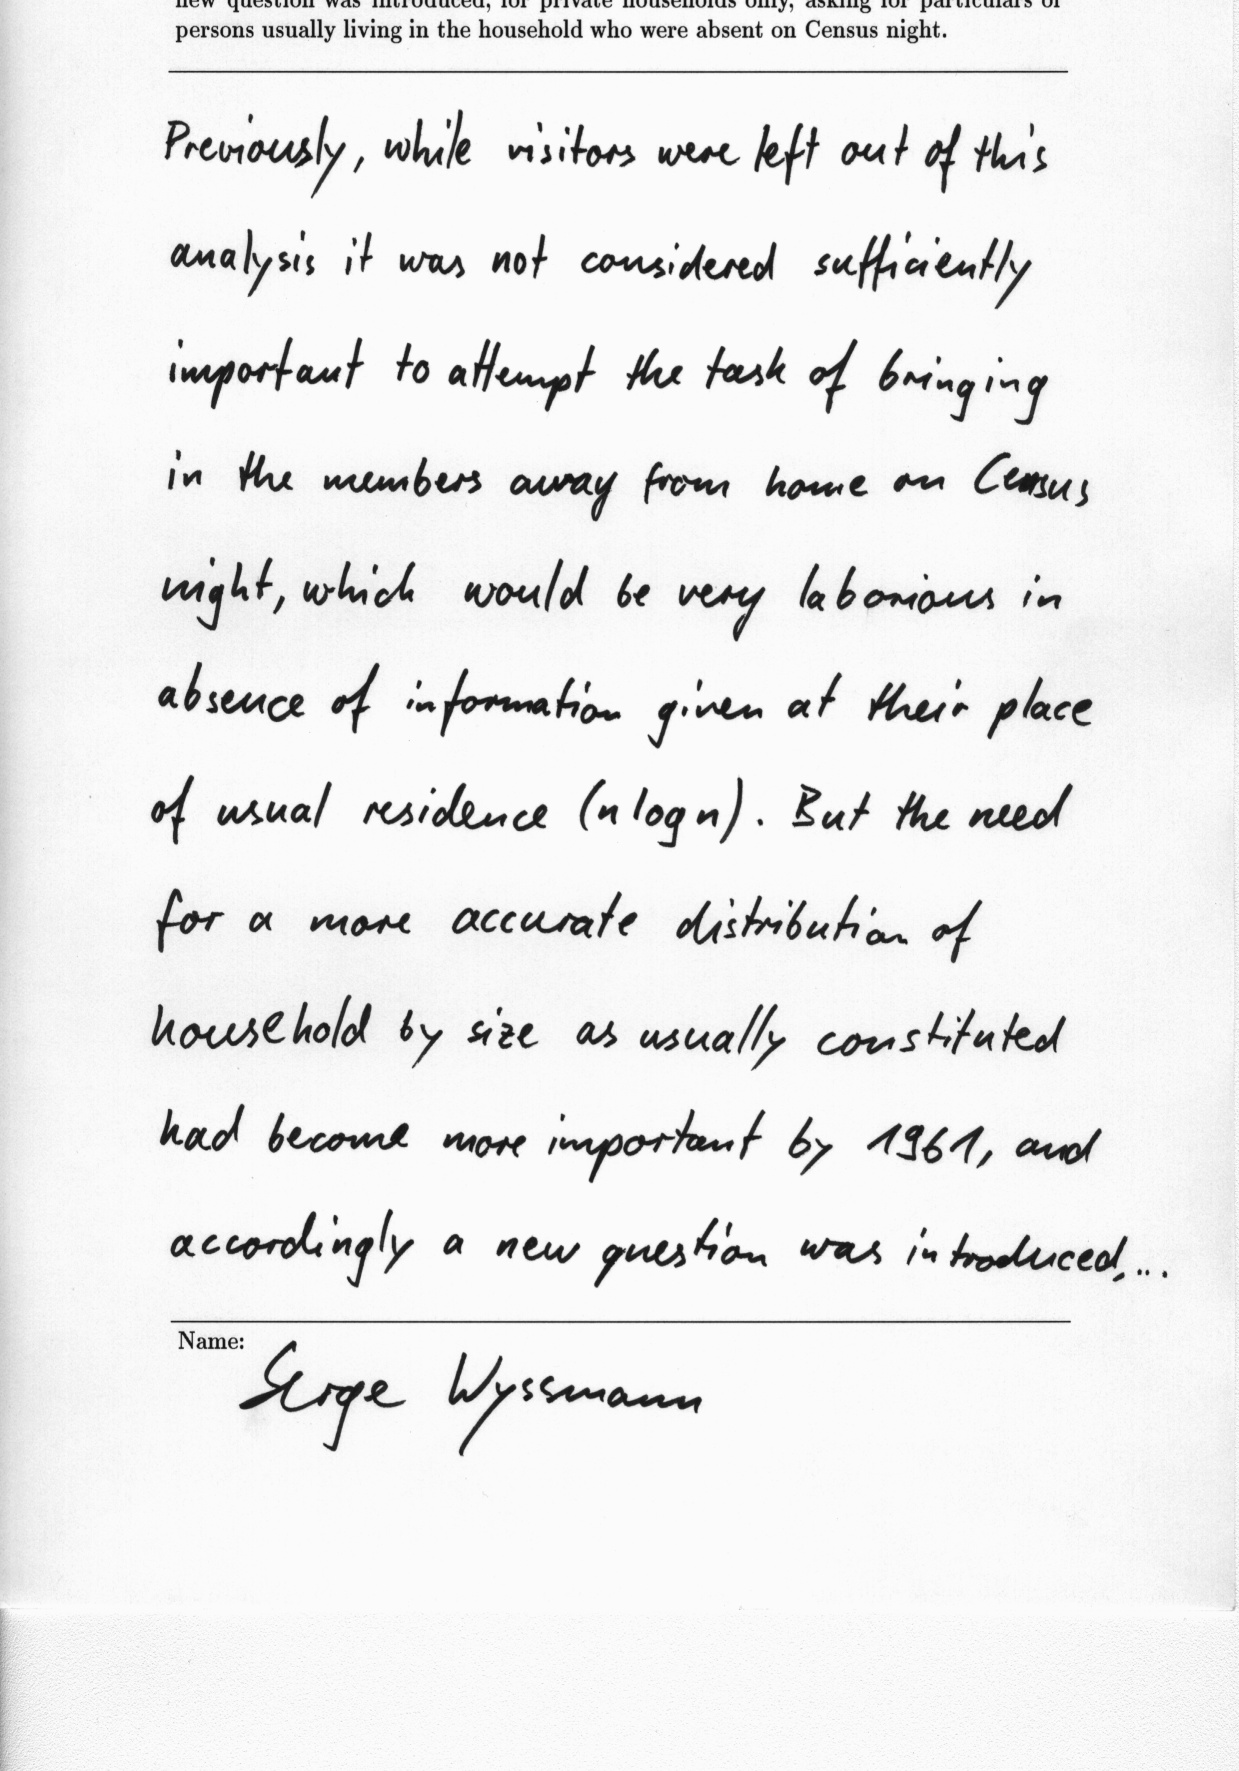 new question was introduced, for private households only, asking for particulars of
persons usually living in the household who were absent on Census night.
Previously, while visitors were left out of this
analysis it was not considered sufficiently
important to attempt the task of bringing
in the members away from home on Census
night, which would be very laborious in
absence of information given at their place
of usual residence (n log n). But the need
for a more accurate distribution of
household by size as usually constituted
had become more important by 1961, and
accordingly a new question was introduced,...
Name:
Serge Wyssmann